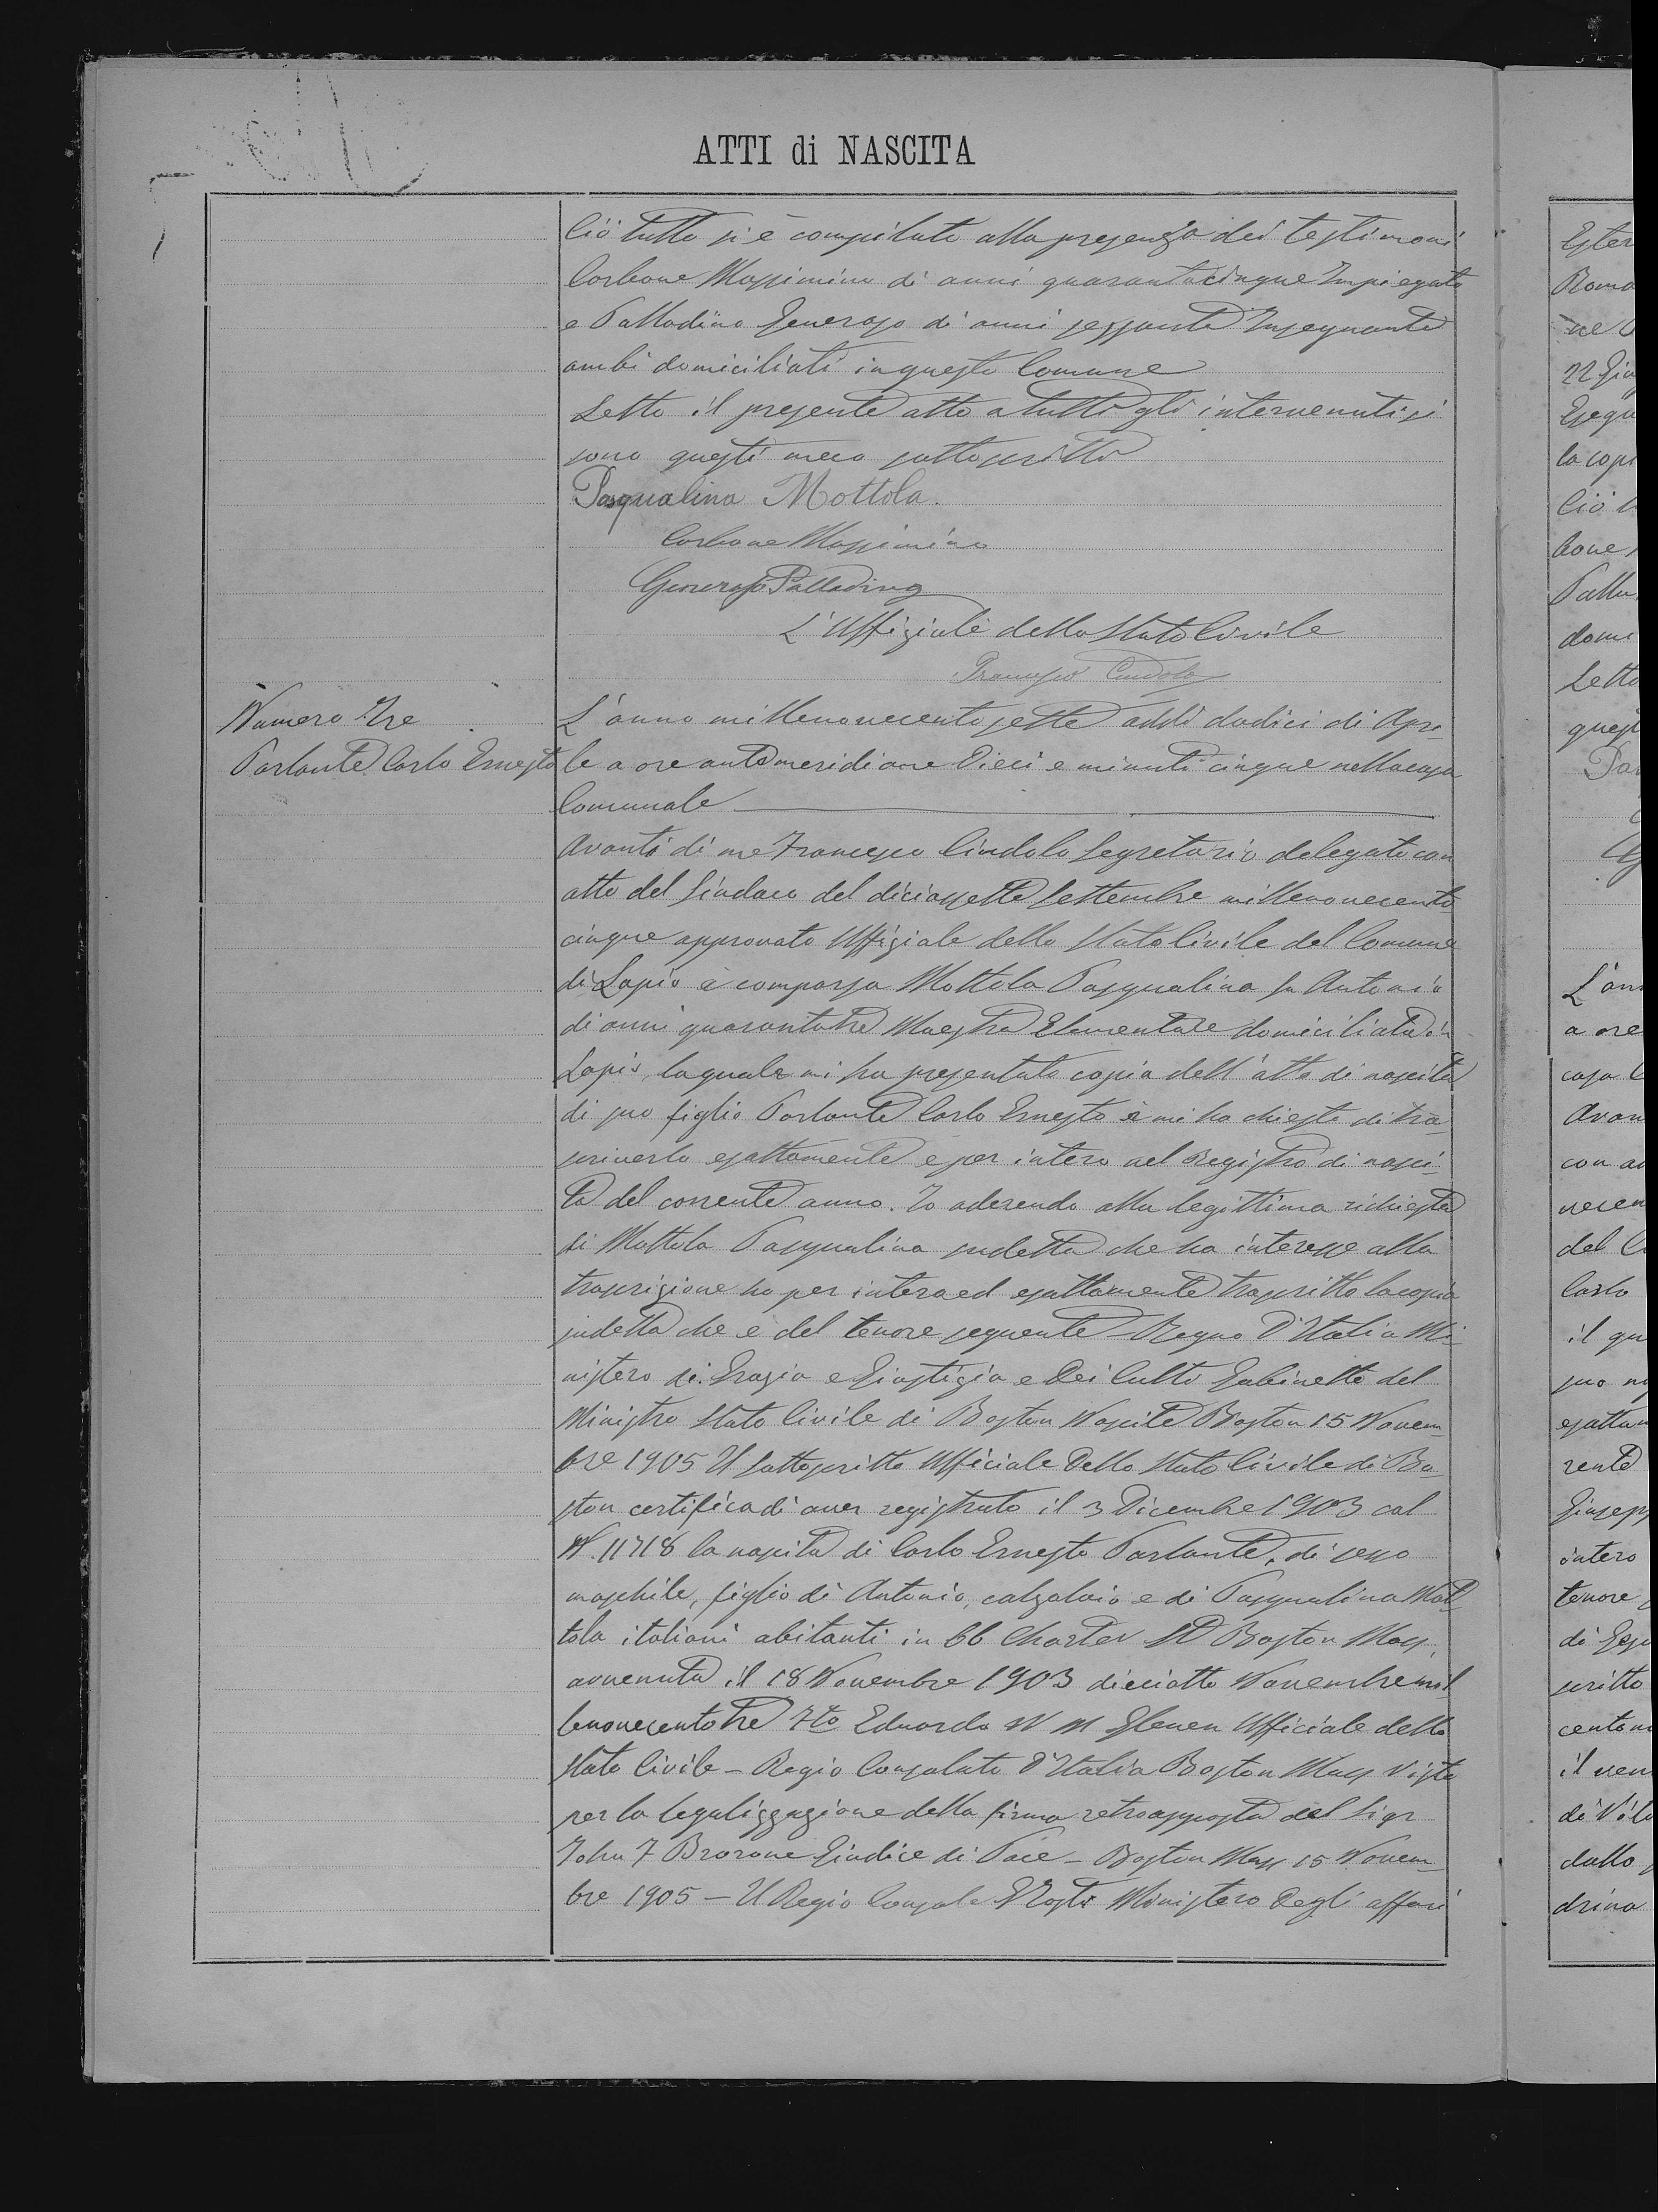 ATTI di NASCITA
Ciò tutto si è compilato alla presenza dei testimoni
Carbone Massimino di anni quarantacinque Impiegato
e Palladino Generoso di anni sessanta Insegnante
ambi domiciliati in questo Comune
Letto il presente atto a tutti gli intervenuti si
sono questi meco sottoscritti
Pasqualina Mottola.
Carbone Massimino
Generoso Palladino
L'Uffiziale dello Stato Civile
Francesco Cindolo
Numero Tre
Parlante Carlo Ernesto
L'anno millenovecentosette addì dodici di Apri-
le a ore antimeridiane Dieci e minuti cinque nella casa
Comunale
Avanti di me Francesco Cindolo Segretario delegato con
atto del Sindaco del diciassette Settembre millenovecento
cinque approvato Uffiziale dello Stato Civile del Comune
di Lapio è comparsa Mottola Pasqualina fu Antonio
di anni quarantatre Maestra Elementare domiciliata in
Lapio, la quale mi ha presentato copia dell'atto di nascita
di suo figlio Parlante Carlo Ernesto e mi ha chiesto di tra-
scriverlo esattamente e per intero nel Registro di nasci-
ta del corrente anno. Io aderendo alla legittima richiesta
di Mottola Pasqualina sudetta che ha interesse alla
trascrizione ho per intero ed esattamente trascritto la copia
sudetta che è del tenore seguente – Regno D'Italia Mi-
nistero di Grazia e Giustizia e Dei Culti Gabinetto del
Ministro Stato Civile di Boston Nascite Boston 15 Novem-
bre 1905 Il Sottoscritto Ufficiale Dello Stato Civile di Bo
ston certifica di aver registrato il 3 Dicembre 1903 col
N. 11718 la nascita di Carlo Ernesto Parlante, di sesso
maschile, figlio di Antonio, calzolaio e di Pasqualina Mot
tola italiani abitanti in 66 Charter St Boston Mass,
avvenuta il 18 Novembre 1903 dieciotto Novembre mil
lenovecentotre Fto Eduardo W M Glenen Ufficiale dello
Stato Civile – Regio Consolato D'Italia Boston Mass Visto
per la legalizzazione della firma retroapposta del Sigr
John F Brarone Giudice di Pace – Boston Mass 15 Novem-
bre 1905 – Il Regio Console Ministero Degli affari
Ester
Roma
22 Giu
Esegu
la copi
Ciò
bone
Palla
domi
Letto
quest
L'an
a ore
casa C
Avan
con a
necen
del C
Carlo
il qu
suo
esattam
rente
Giusepp
intero
tenore
di
scritto
cento
il ven
di
dallo
drina